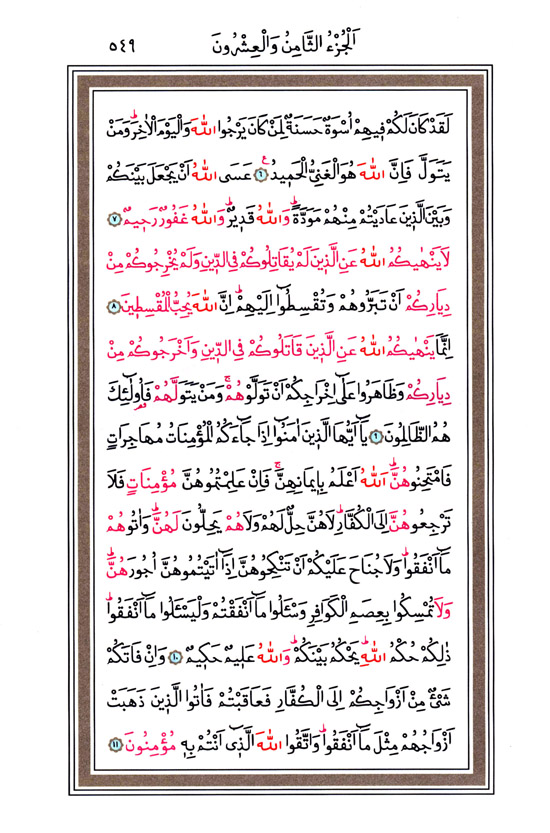 اَلْجُزْءُ الثَّامِنُ وَالْعِشْرُونَ ٥٤٩
لَقَدْ كَانَ لَكُمْ فٖيهِمْ اُسْوَةٌ حَسَنَةٌ لِمَنْ كَانَ يَرْجُوا اللّٰهَ وَالْيَوْمَ الْاٰخِرَؕ وَمَنْ
يَتَوَلَّ فَاِنَّ اللّٰهَ هُوَ الْغَنِىُّ الْحَمٖيدُࣖ ٦ عَسَى اللّٰهُ اَنْ يَجْعَلَ بَيْنَكُمْ
وَبَيْنَ الَّذٖينَ عَادَيْتُمْ مِنْهُمْ مَوَدَّةًؕ وَاللّٰهُ قَدٖيرٌؕ وَاللّٰهُ غَفُورٌ رَحٖيمٌ ٧
لَا يَنْهٰيكُمُ اللّٰهُ عَنِ الَّذٖينَ لَمْ يُقَاتِلُوكُمْ فِى الدّٖينِ وَلَمْ يُخْرِجُوكُمْ مِنْ
دِيَارِكُمْ اَنْ تَبَرُّوهُمْ وَتُقْسِطُٓوا اِلَيْهِمْؕ اِنَّ اللّٰهَ يُحِبُّ الْمُقْسِطٖينَ ٨
اِنَّمَا يَنْهٰيكُمُ اللّٰهُ عَنِ الَّذٖينَ قَاتَلُوكُمْ فِى الدّٖينِ وَاَخْرَجُوكُمْ مِنْ
دِيَارِكُمْ وَظَاهَرُوا عَلٰٓى اِخْرَاجِكُمْ اَنْ تَوَلَّوْهُمْۚ وَمَنْ يَتَوَلَّهُمْ فَاُو۬لٰٓئِكَ
هُمُ الظَّالِمُونَ ٩ يَٓا اَيُّهَا الَّذٖينَ اٰمَنُٓوا اِذَا جَٓاءَكُمُ الْمُؤْمِنَاتُ مُهَاجِرَاتٍ
فَامْتَحِنُوهُنَّؕ اَللّٰهُ اَعْلَمُ بِاٖيمَانِهِنَّۚ فَاِنْ عَلِمْتُمُوهُنَّ مُؤْمِنَاتٍ فَلَا
تَرْجِعُوهُنَّ اِلَى الْكُفَّارِؕ لَا هُنَّ حِلٌّ لَهُمْ وَلَا هُمْ يَحِلُّونَ لَهُنَّؕ وَاٰتُوهُمْ
مَٓا اَنْفَقُواؕ وَلَا جُنَاحَ عَلَيْكُمْ اَنْ تَنْكِحُوهُنَّ اِذَٓا اٰتَيْتُمُوهُنَّ اُجُورَهُنَّؕ
وَلَا تُمْسِكُوا بِعِصَمِ الْكَوَافِرِ وَسْـَٔلُوا مَٓا اَنْفَقْتُمْ وَلْيَسْـَٔلُوا مَٓا اَنْفَقُواؕ
ذٰلِكُمْ حُكْمُ اللّٰهِؕ يَحْكُمُ بَيْنَكُمْؕ وَاللّٰهُ عَلٖيمٌ حَكٖيمٌ ١٠ وَاِنْ فَاتَكُمْ
شَىْءٌ مِنْ اَزْوَاجِكُمْ اِلَى الْكُفَّارِ فَعَاقَبْتُمْ فَاٰتُوا الَّذٖينَ ذَهَبَتْ
اَزْوَاجُهُمْ مِثْلَ مَٓا اَنْفَقُواؕ وَاتَّقُوا اللّٰهَ الَّذٖٓى اَنْتُمْ بِهٖ مُؤْمِنُونَ ١١